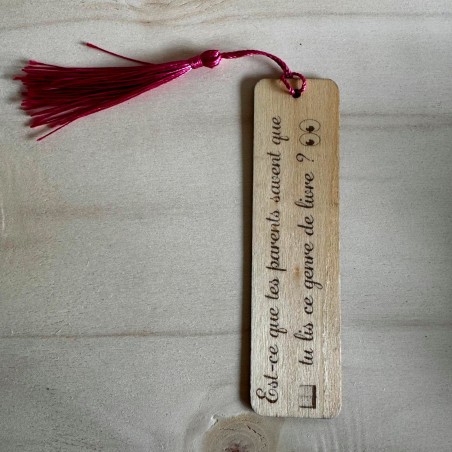 Est-ce que tes parents savent que
tu lis ce genre de livre ? 👀